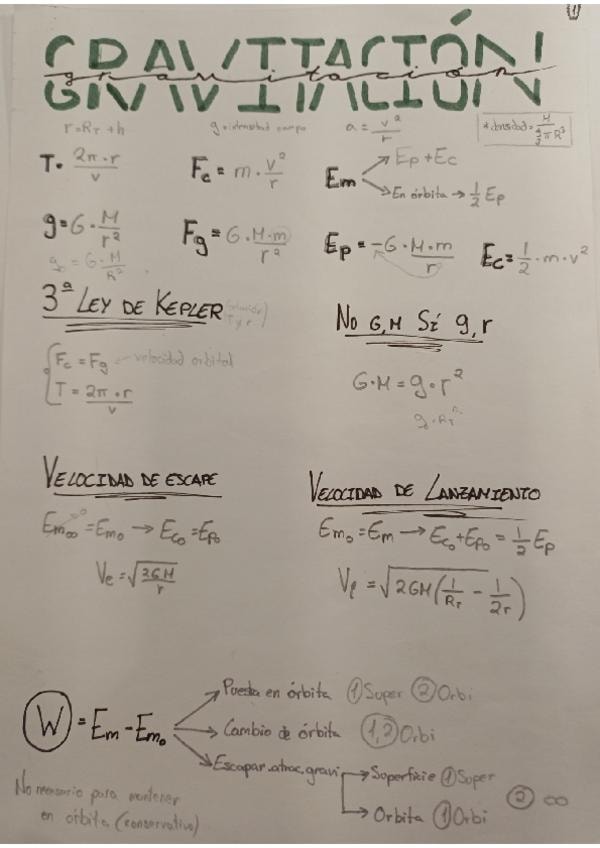 1
GRAVITACIÓN!
gravitación
r=R_T + h
g = intensidad campo
a = v²/r
*densidad = M / (4/3 π R³)
T = 2π · r / v
F_c = m · v²/r
E_m → E_p + E_c
→ En órbita → 1/2 E_p
g = G · M/r²
g_0 = G · M/R²
F_g = G · M·m/r²
E_p = -G · M·m/r
E_c = 1/2 · m · v²
3ª LEY DE KEPLER
T y r
NO G,M SÍ g,r
F_c = F_g — velocidad orbital
T = 2π · r / v
G·M = g·r²
g · R_T²
VELOCIDAD DE ESCAPE
E_m∞ = E_m0 → E_c0 = E_p0
0
V_e = √(2GM/r)
VELOCIDAD DE LANZAMIENTO
E_m0 = E_m → E_c0 + E_p0 = 1/2 E_p
V_l = √(2GM(1/R_T - 1/2r))
W = E_m - E_m0
→ Puesta en órbita ① Super ② Orbi
→ Cambio de órbita ①,② Orbi
→ Escapar atrac. gravi → Superficie ① Super
→ Orbita ① Orbi
② ∞
No necesario para mantener
en órbita (conservativo)